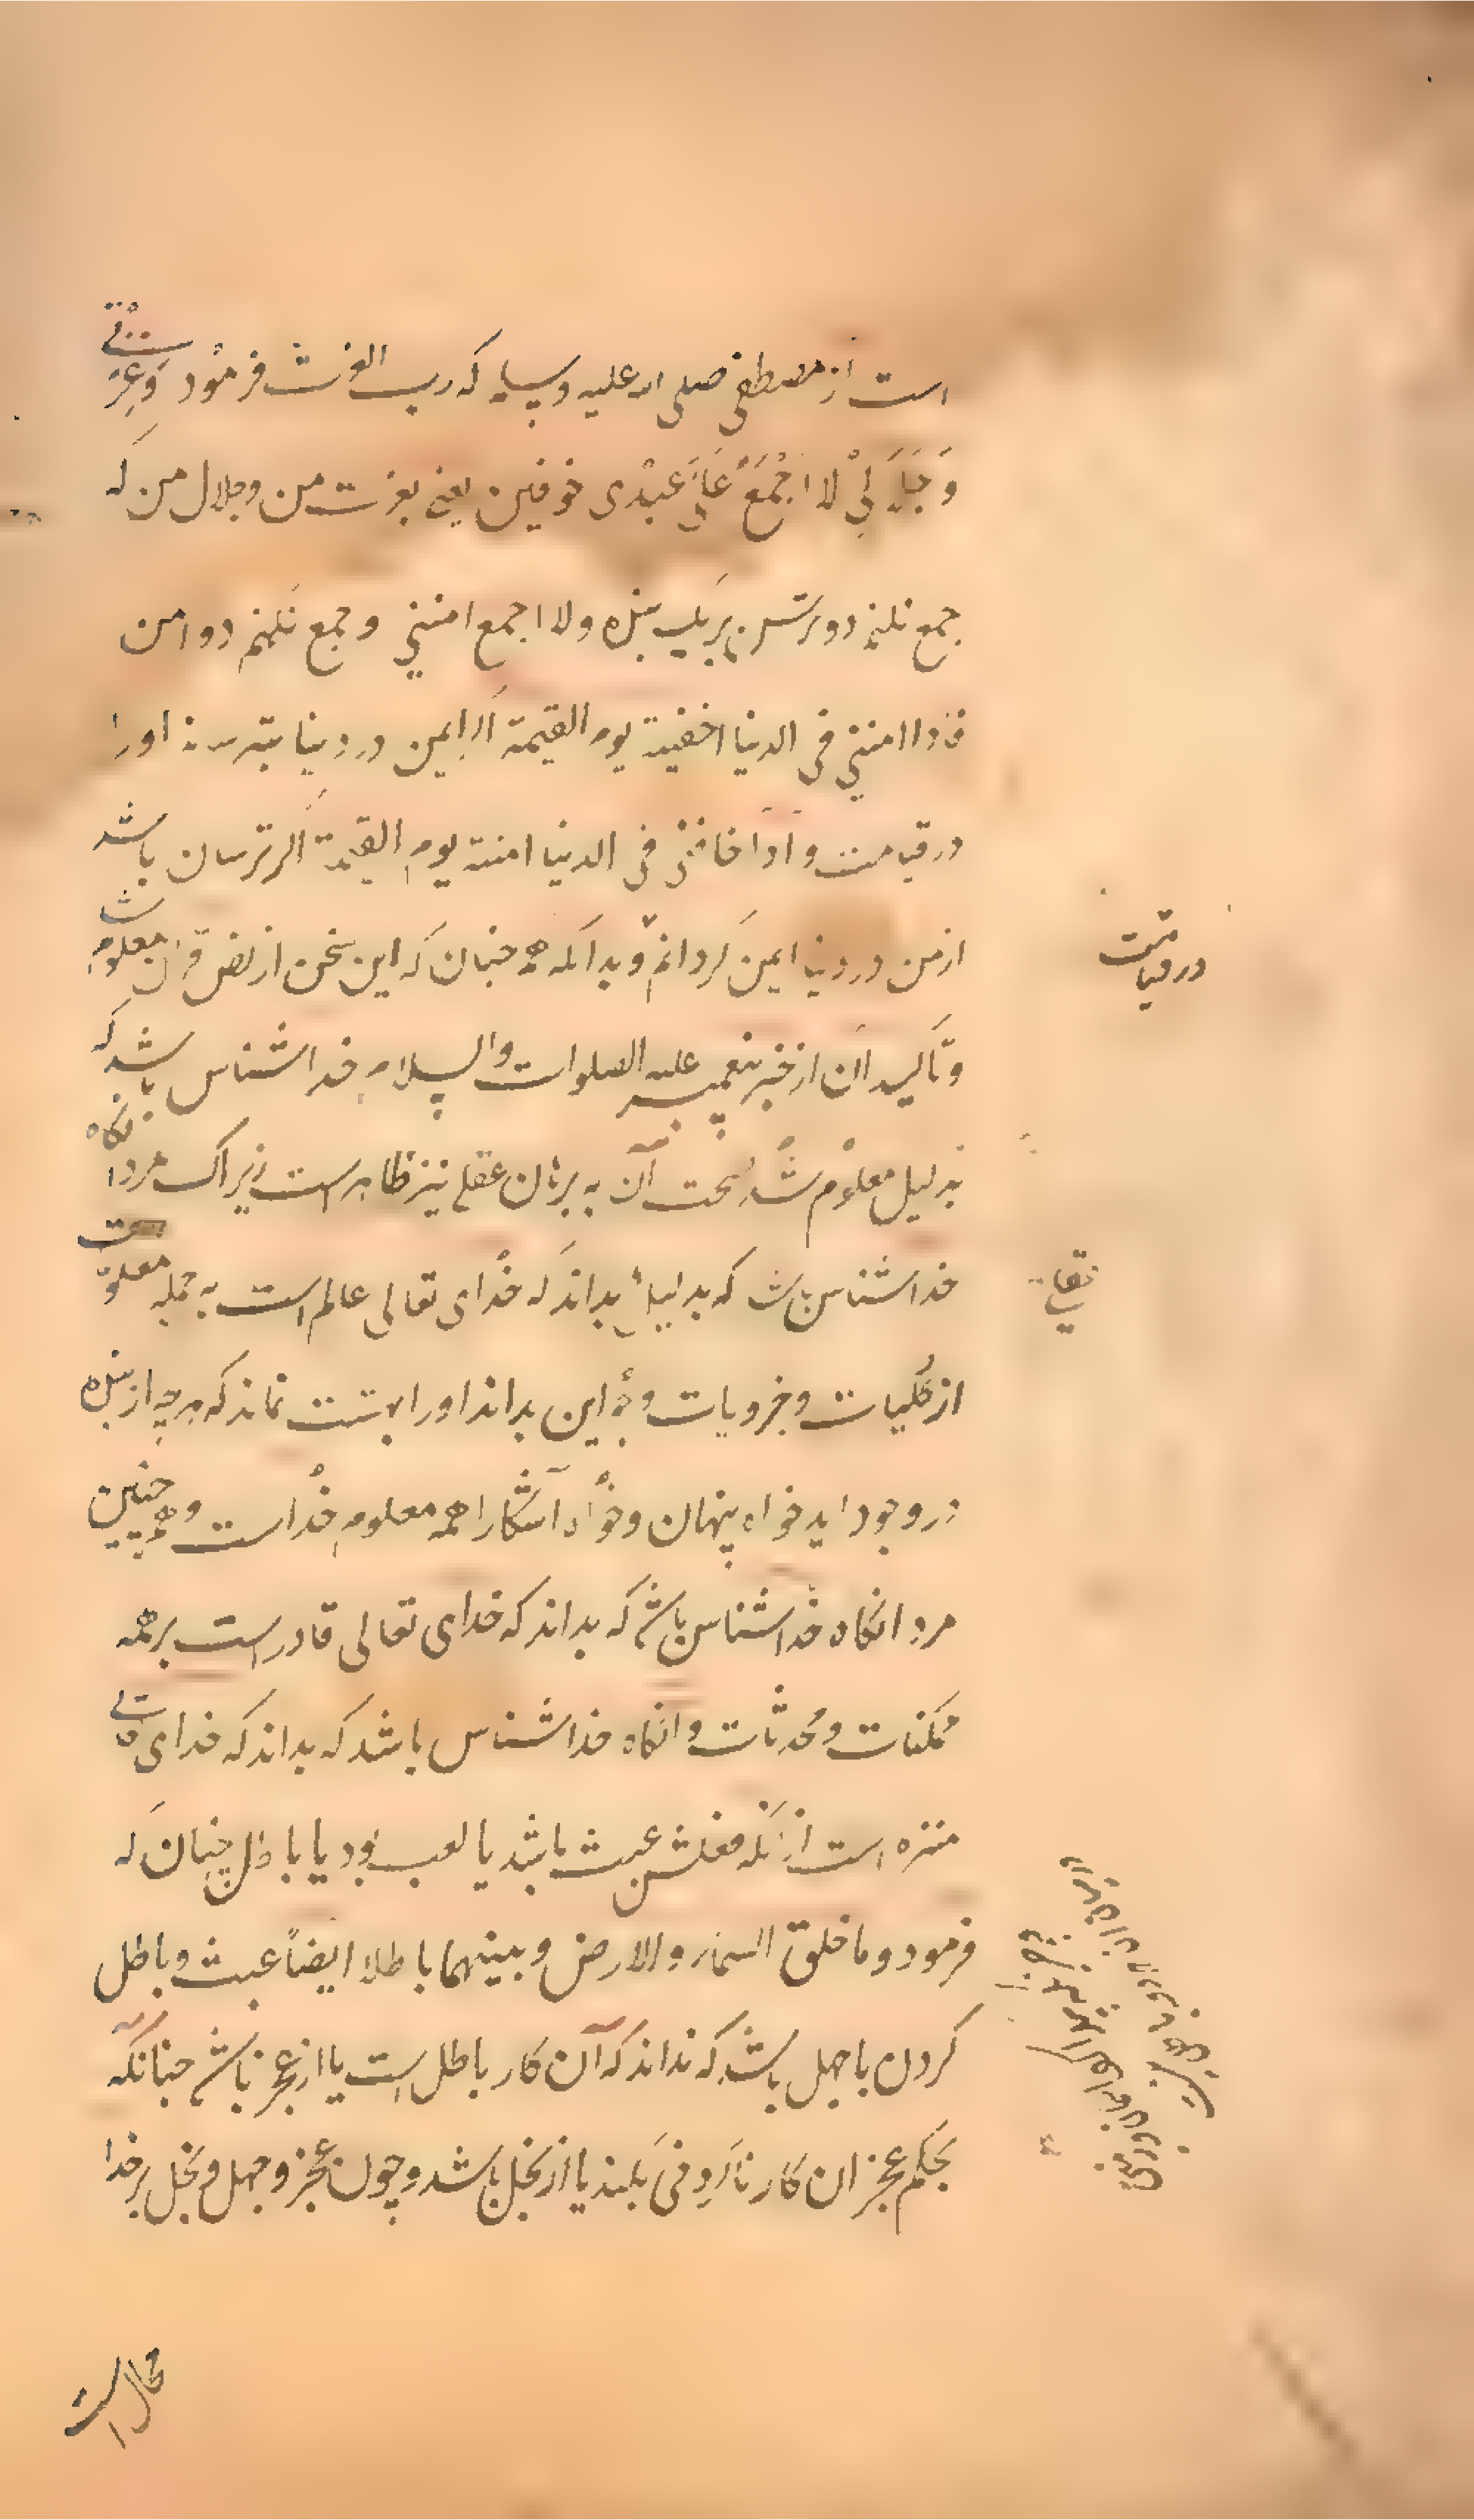 است از مصطفی صلی الله علیه وسلم که رب العزت فرمود وَعِزَّتی
وَجَلَالِیْ لا اَجْمَعُ عَلیٰ عَبْدی خوفین یعنی بعزت من وجلال من که
جمع نکنم دو ترس بریک بنده ولا اجمع امنین وجمع نکنم دو امن
فاذا امننی فی الدنیا اخفیته یوم القیمة اگر ایمن در دنیا بترسانم اورا
در قیامت واذا خافنی فی الدنیا امنته یوم القیمة اگر ترسان باشد
از من در دنیا ایمن گردانم وبدانکه همچنانکه این سخن از نص قران معلوم شد
وتاکید آن از خبر پیغمبر علیه الصلوات والسلام خداشناس باشد که
بدلیل معلوم شد صحت آن به برهان عقلی نیز ظاهر است زیراک مرد آنگاه
خداشناس باشد که بدلیل بداند که خدای تعالی عالم است به جمله معلومات
از کلیات وجزویات وچو این بداند اورا شبهت نماند که هرچه از بنده
در وجود اید خواه پنهان وخواه آشکارا همه معلوم خداست وهمچنین
مرد انگاه خداشناس باشد که بداند که خدای تعالی قادر است بر همه
ممکنات ومحدثات وانگاه خداشناس باشد که بداند که خدای تعالی
منزه است از آنکه فعلش عبث باشد یا لعب بود یا باطل چنانکه
فرمود وما خلق السماء والارض وبینهما باطلا ایضاً عبث وباطل
کردن یا جهل باشد که نداند که آن کار باطل است یا از عجز باشد چنانکه
بحکم عجز ان کار ناکردنی بکند یا از بخل باشد وچون عجز وجهل وبخل بر خدا
محال است
در قیامت